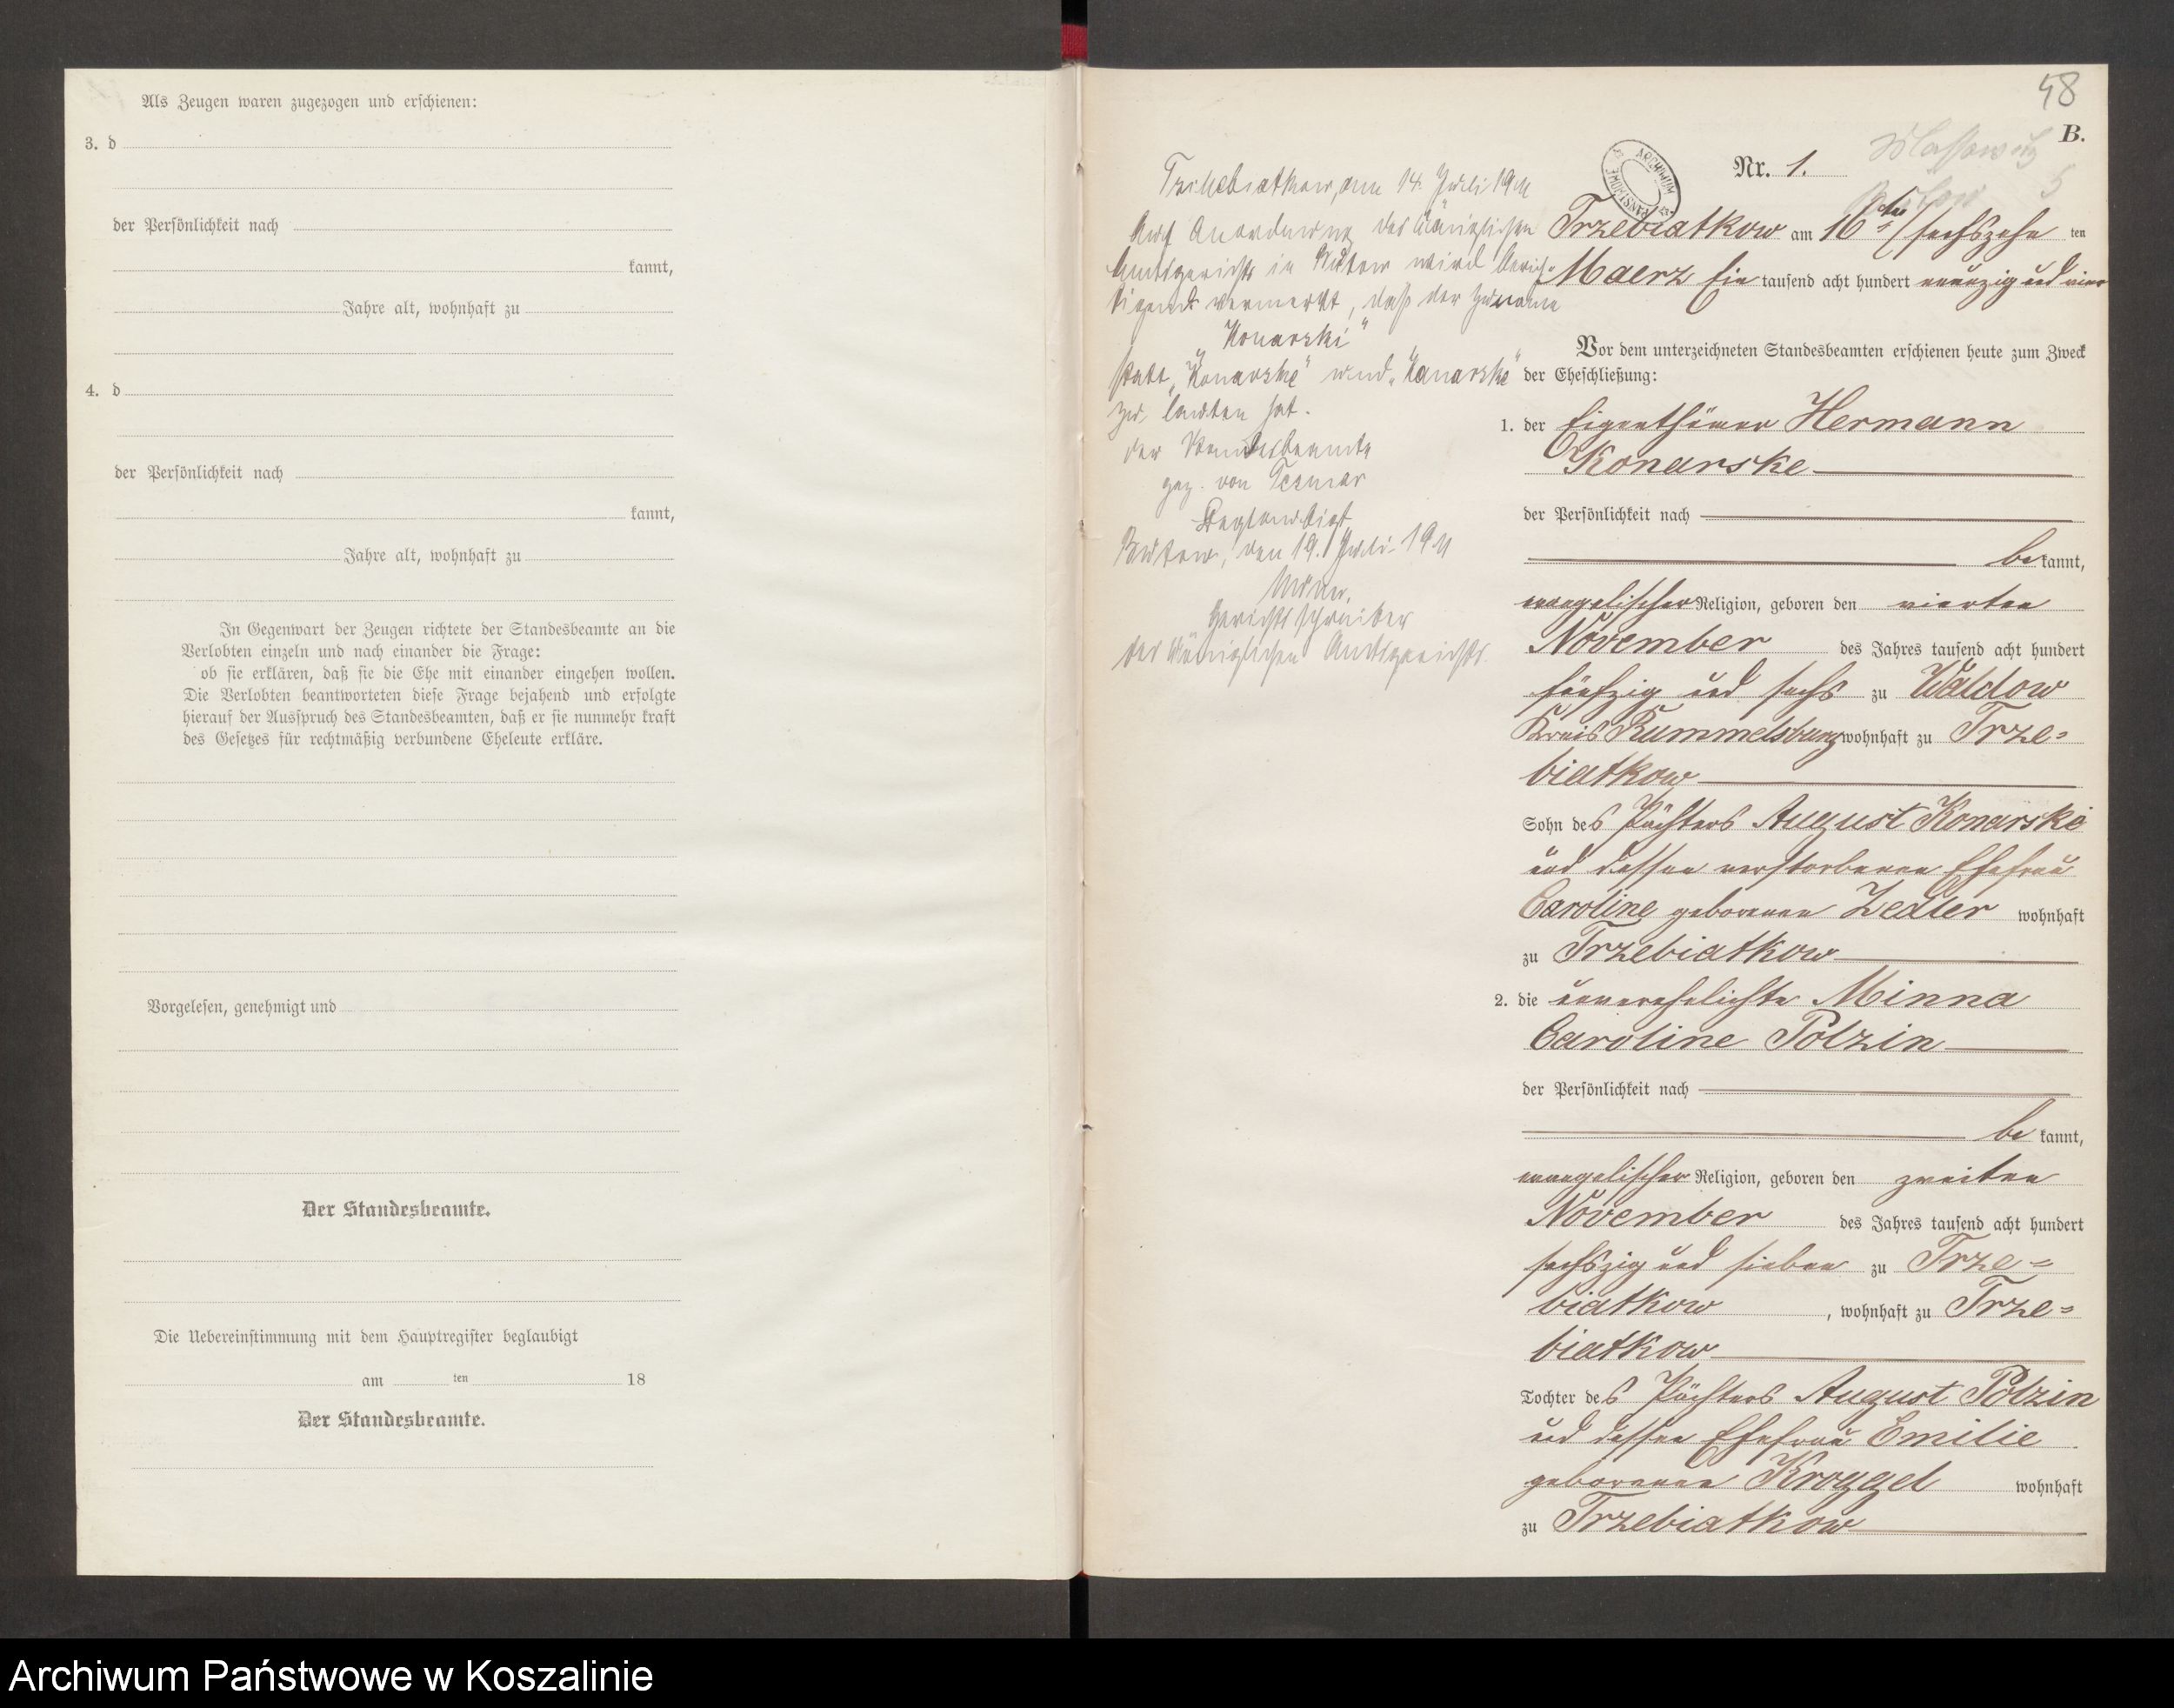 Als Zeugen waren zugezogen und erschienen:
3. d
der Persönlichkeit nach
kannt,
Jahre alt, wohnhaft zu
4. d
der Persönlichkeit nach
kannt,
Jahre alt, wohnhaft zu
In Gegenwart der Zeugen richtete der Standesbeamte an die
Verlobten einzeln und nach einander die Frage:
ob sie erklären, daß sie die Ehe mit einander eingehen wollen.
Die Verlobten beantworteten diese Frage bejahend und erfolgte
hierauf der Ausspruch des Standesbeamten, daß er sie nunmehr kraft
des Gesetzes für rechtmäßig verbundene Eheleute erkläre.
Vorgelesen, genehmigt und
Der Standesbeamte.
Die Uebereinstimmung mit dem Hauptregister beglaubigt
am ten 18
Der Standesbeamte.
48
B.
Nr. 1.
Trzebiatkow, am 14. Juli 1911
Auf Anordnung des Königlichen
Amtsgerichts in Bütow wird berich-
tigend vermerkt, daß der Zuname
"Konarski"
statt "Konarske" und "Kanarske"
zu lauten hat.
der Standesbeamte
gez. von Tesmar
Beglaubigt
Bütow, den 19. Juli 1911
Gerichtsschreiber
des Königlichen Amtsgerichts.
Trzebiatkow am 16ten/sechszehn ten
Maerz Ein tausend acht hundert neunzig und vier
Vor dem unterzeichneten Standesbeamten erschienen heute zum Zweck
der Eheschließung:
1. der Eigenthümer Hermann
Konarske
der Persönlichkeit nach
be kannt,
evangelischer Religion, geboren den vierten
November des Jahres tausend acht hundert
fünfzig und sechs zu Waldow
Kreis Rummelsburg wohnhaft zu Trze=
biatkow
Sohn des Pächters August Konarske
und dessen verstorbenen Ehefrau
Caroline geborenen Zedler wohnhaft
zu Trzebiatkow
2. die unverehelichte Minna
Caroline Polzin
der Persönlichkeit nach
be kannt,
evangelischer Religion, geboren den zweiten
November des Jahres tausend acht hundert
sechszig und sieben zu Trze=
biatkow, wohnhaft zu Trze=
biatkow
Tochter des Pächters August Polzin
und dessen Ehefrau Emilie
geborenen Kroggel wohnhaft
zu Trzebiatkow
Archiwum Państwowe w Koszalinie